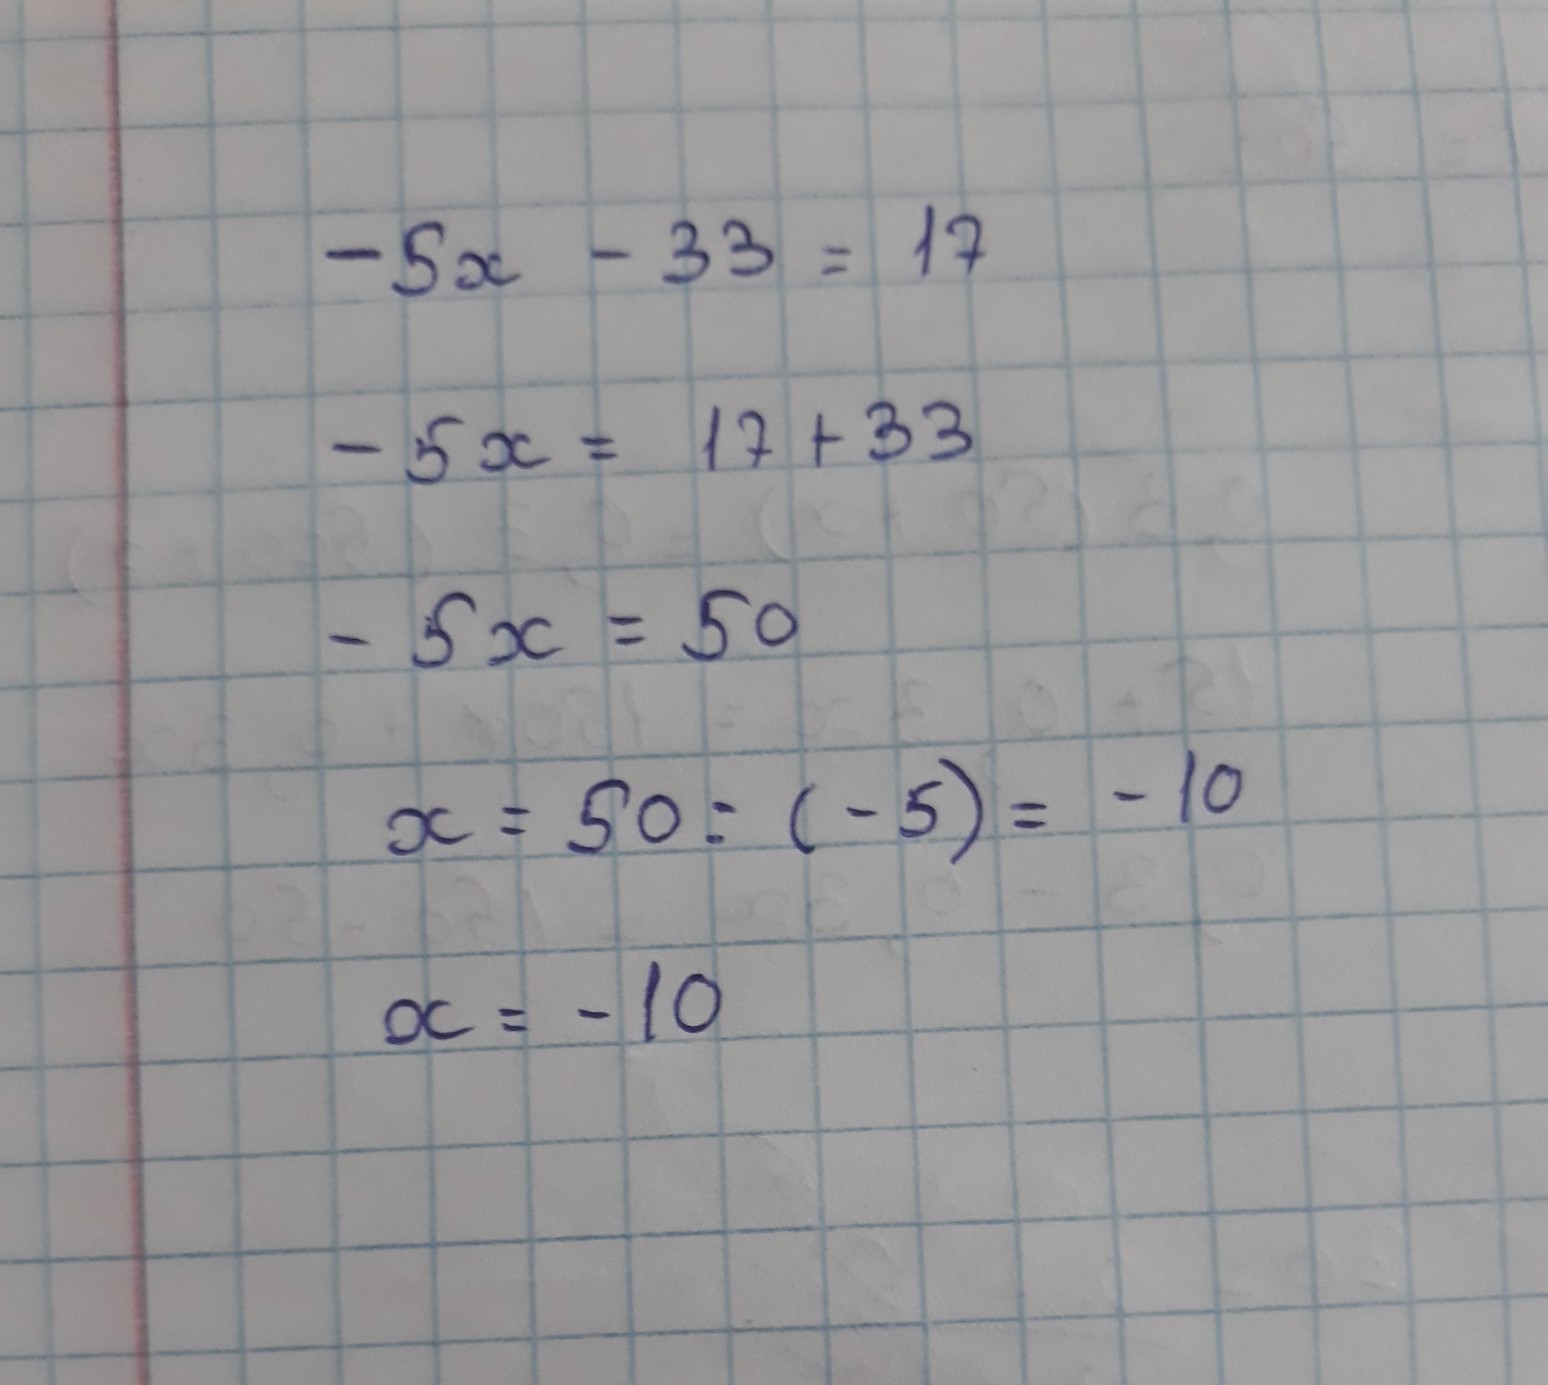 -5x - 33 = 17
-5x = 17+33
-5x = 50
x = 50 : (-5) = -10
x = -10